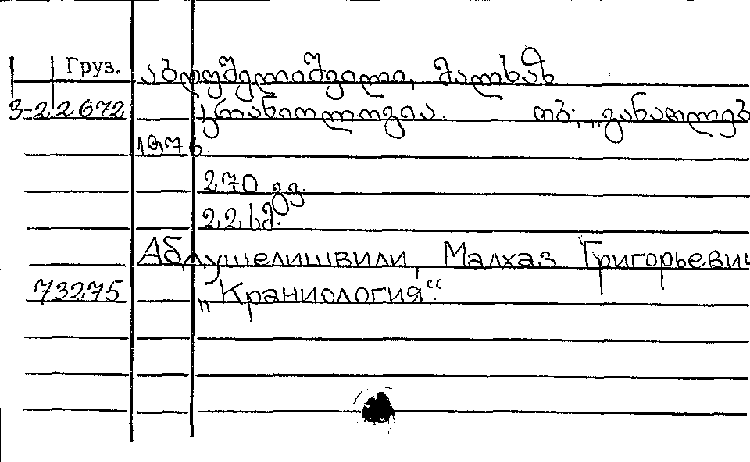 Груз. აბდუშელიშვილი, მალხაზ
3-22672 კრანიოლოგია. თბ; „განათლებ
1976
270 გვ.
22 სმ.
Абдушелишвили, Малхаз Григорьевич
73275 „Краниология“.